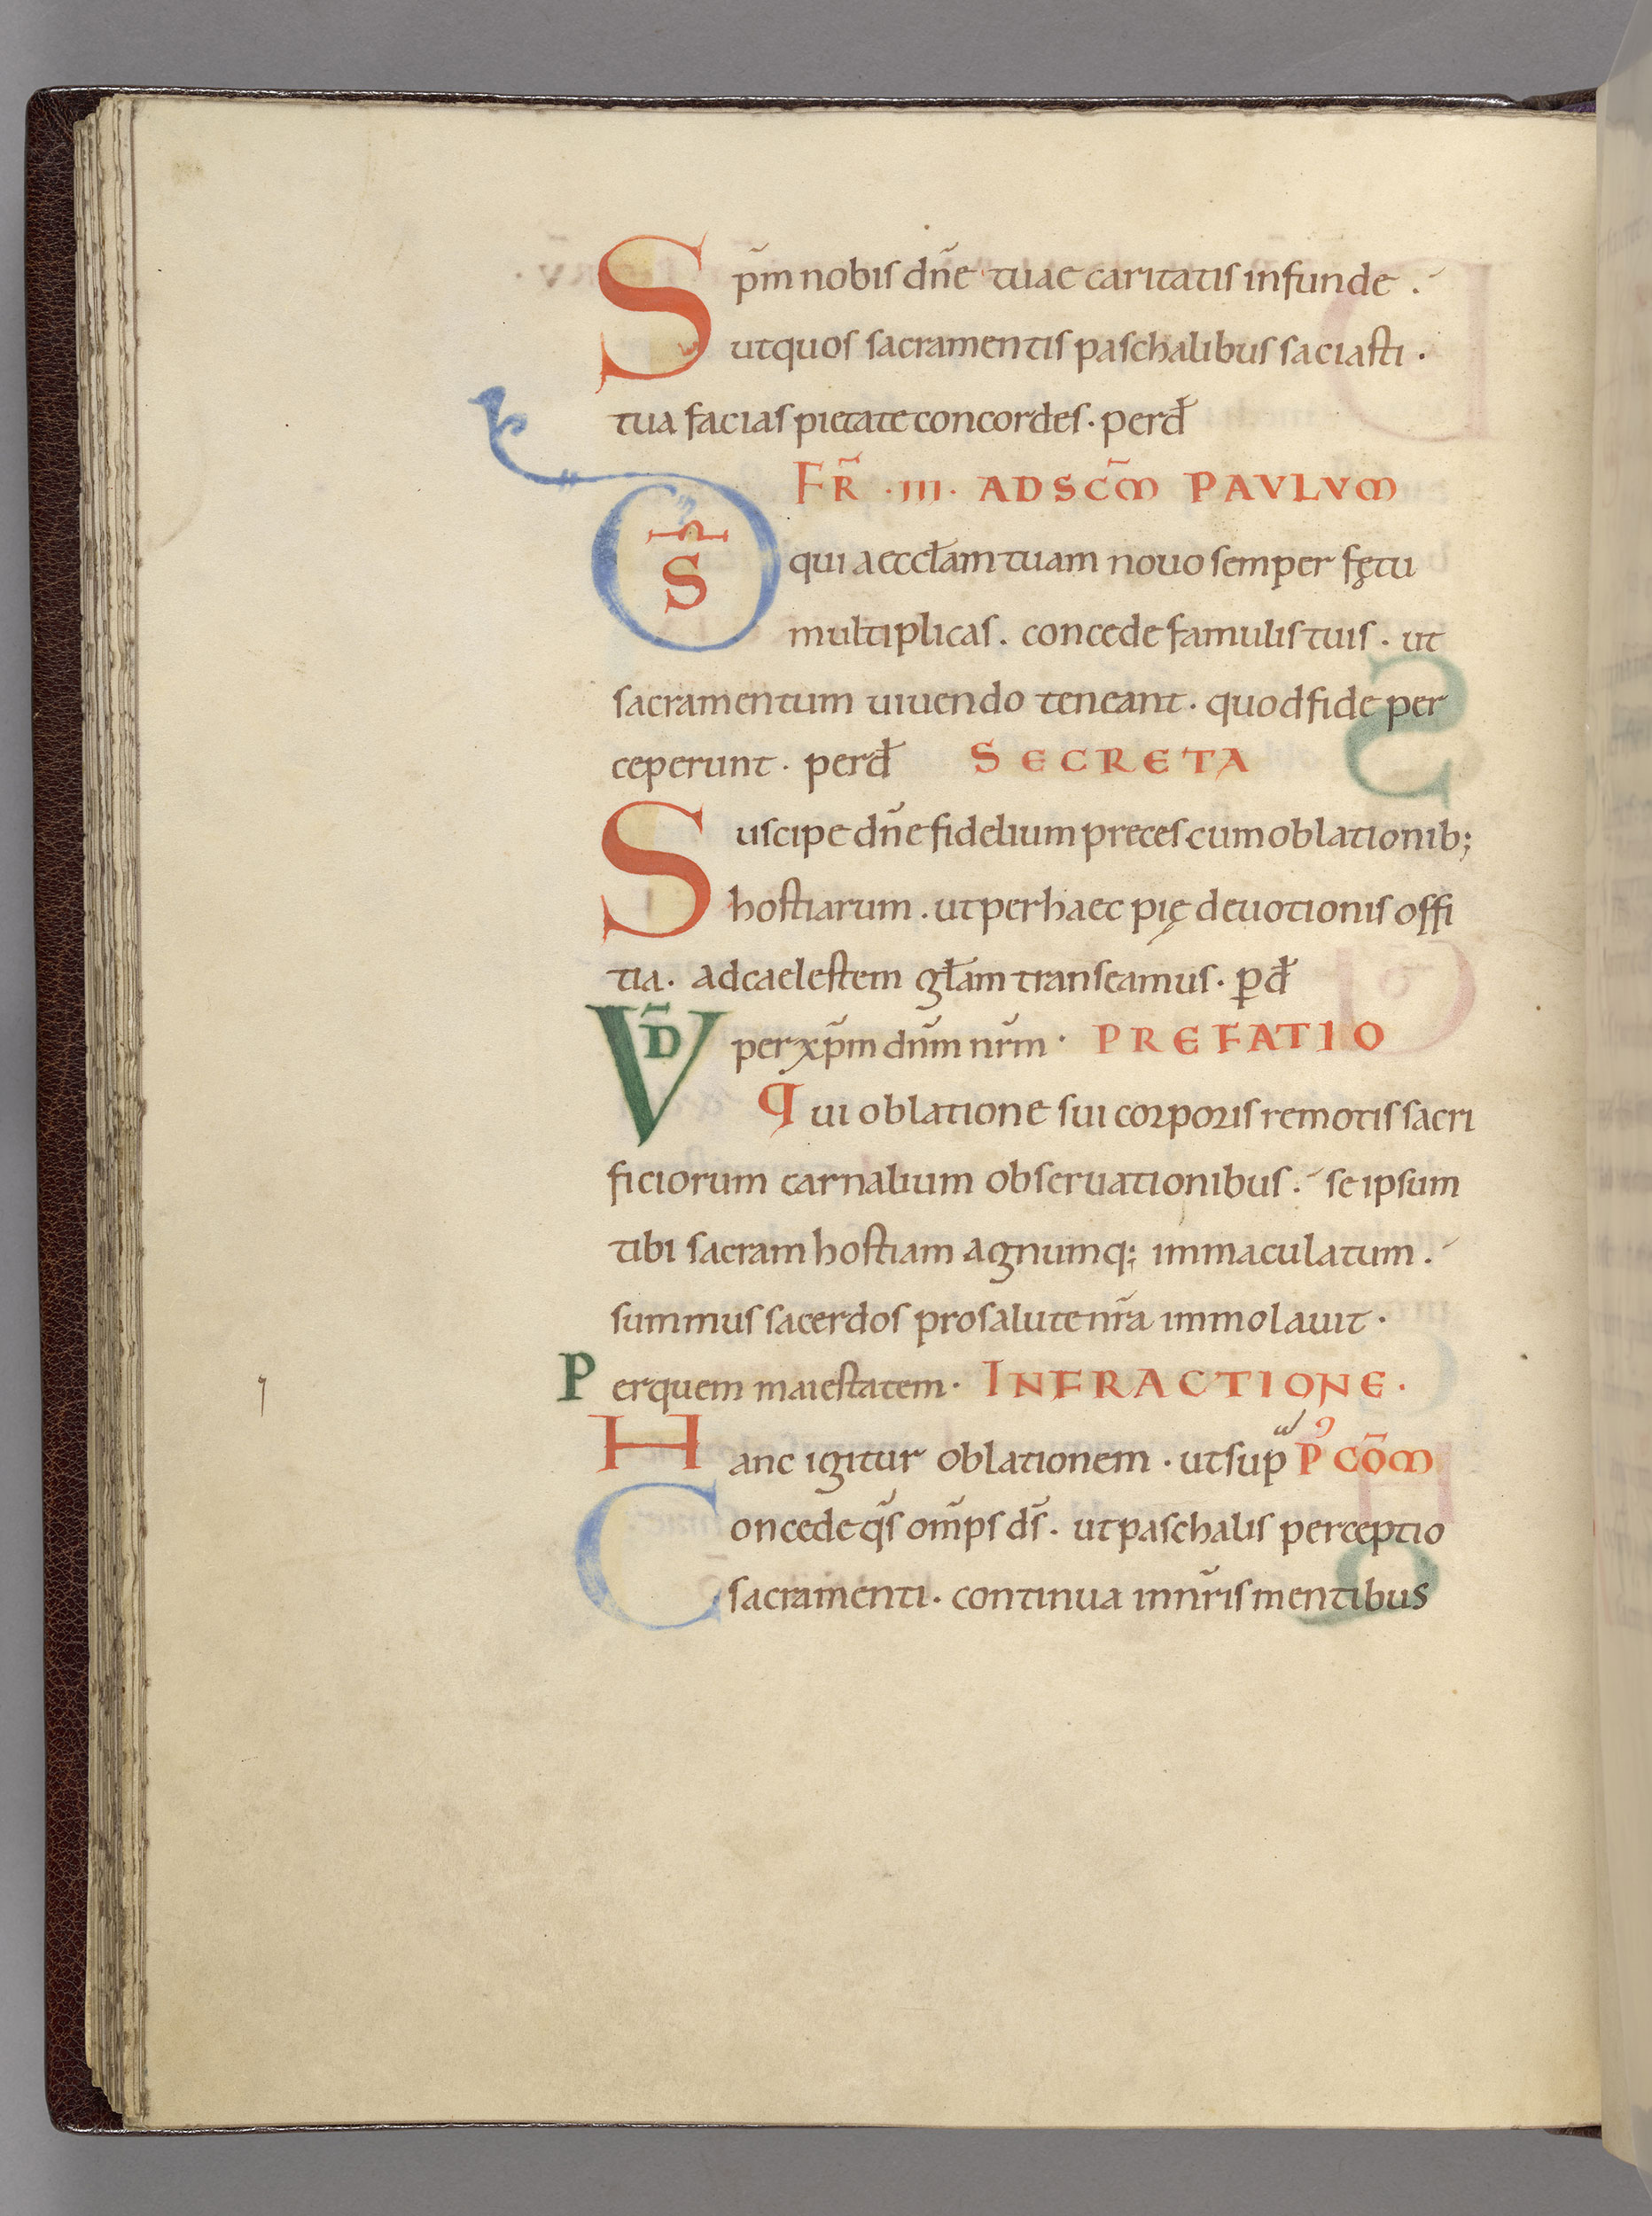 Sp̄m nobis dn̄e tuae caritatis infunde .
ut quos sacramentis paschalibus saciasti .
tua facias pietate concordes . per dƚ
FR̄ . III . AD SC̄M PAVLVM
D̄S qui aeccƚam tuam nouo semper fętu
multiplicas . concede famulis tuis . ut
sacramentum uiuendo teneant . quod fide per
ceperunt . per dƚ SECRETA
Suscipe dn̄e fidelium preces cum oblationib;
hostiarum . ut per haec pię deuotionis offi
tia . ad caelestem gƚam transeamus . ꝑ dƚ
VD̄ per xp̄m dn̄m nr̄m . PREFATIO
Qui oblatione sui corporis remotis sacri
ficiorum carnalium obseruationibus . se ipsum
tibi sacram hostiam agnumq; immaculatum .
summus sacerdos pro salute nr̄a immolauit .
Per quem maiestatem . INFRACTIONE .
Hanc igitur oblationem . ut sup P COM̄
Concede qs̄ om̄ps ds̄ . ut paschalis perceptio
sacramenti . continua in nr̄is mentibus